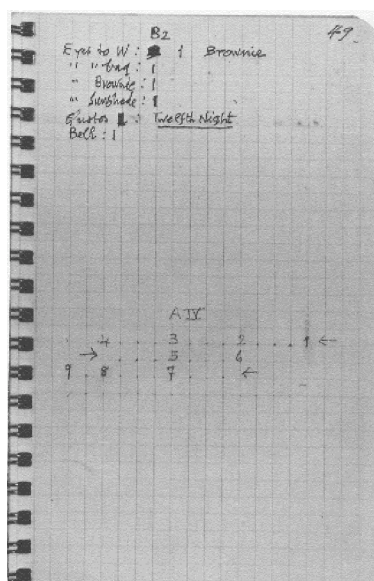 49.
B2
Eyes to W : 1 Brownie
" " bag : 1
" Brownie : 1
" Sunshade : 1
Quotes 1 : Twelfth Night
Bell : 1
A IV
4 . . . 3 . . . 2 . . . 1 ←
→ . . . 5 . . . 6
9 . 8 . . . 7 . . . . ←